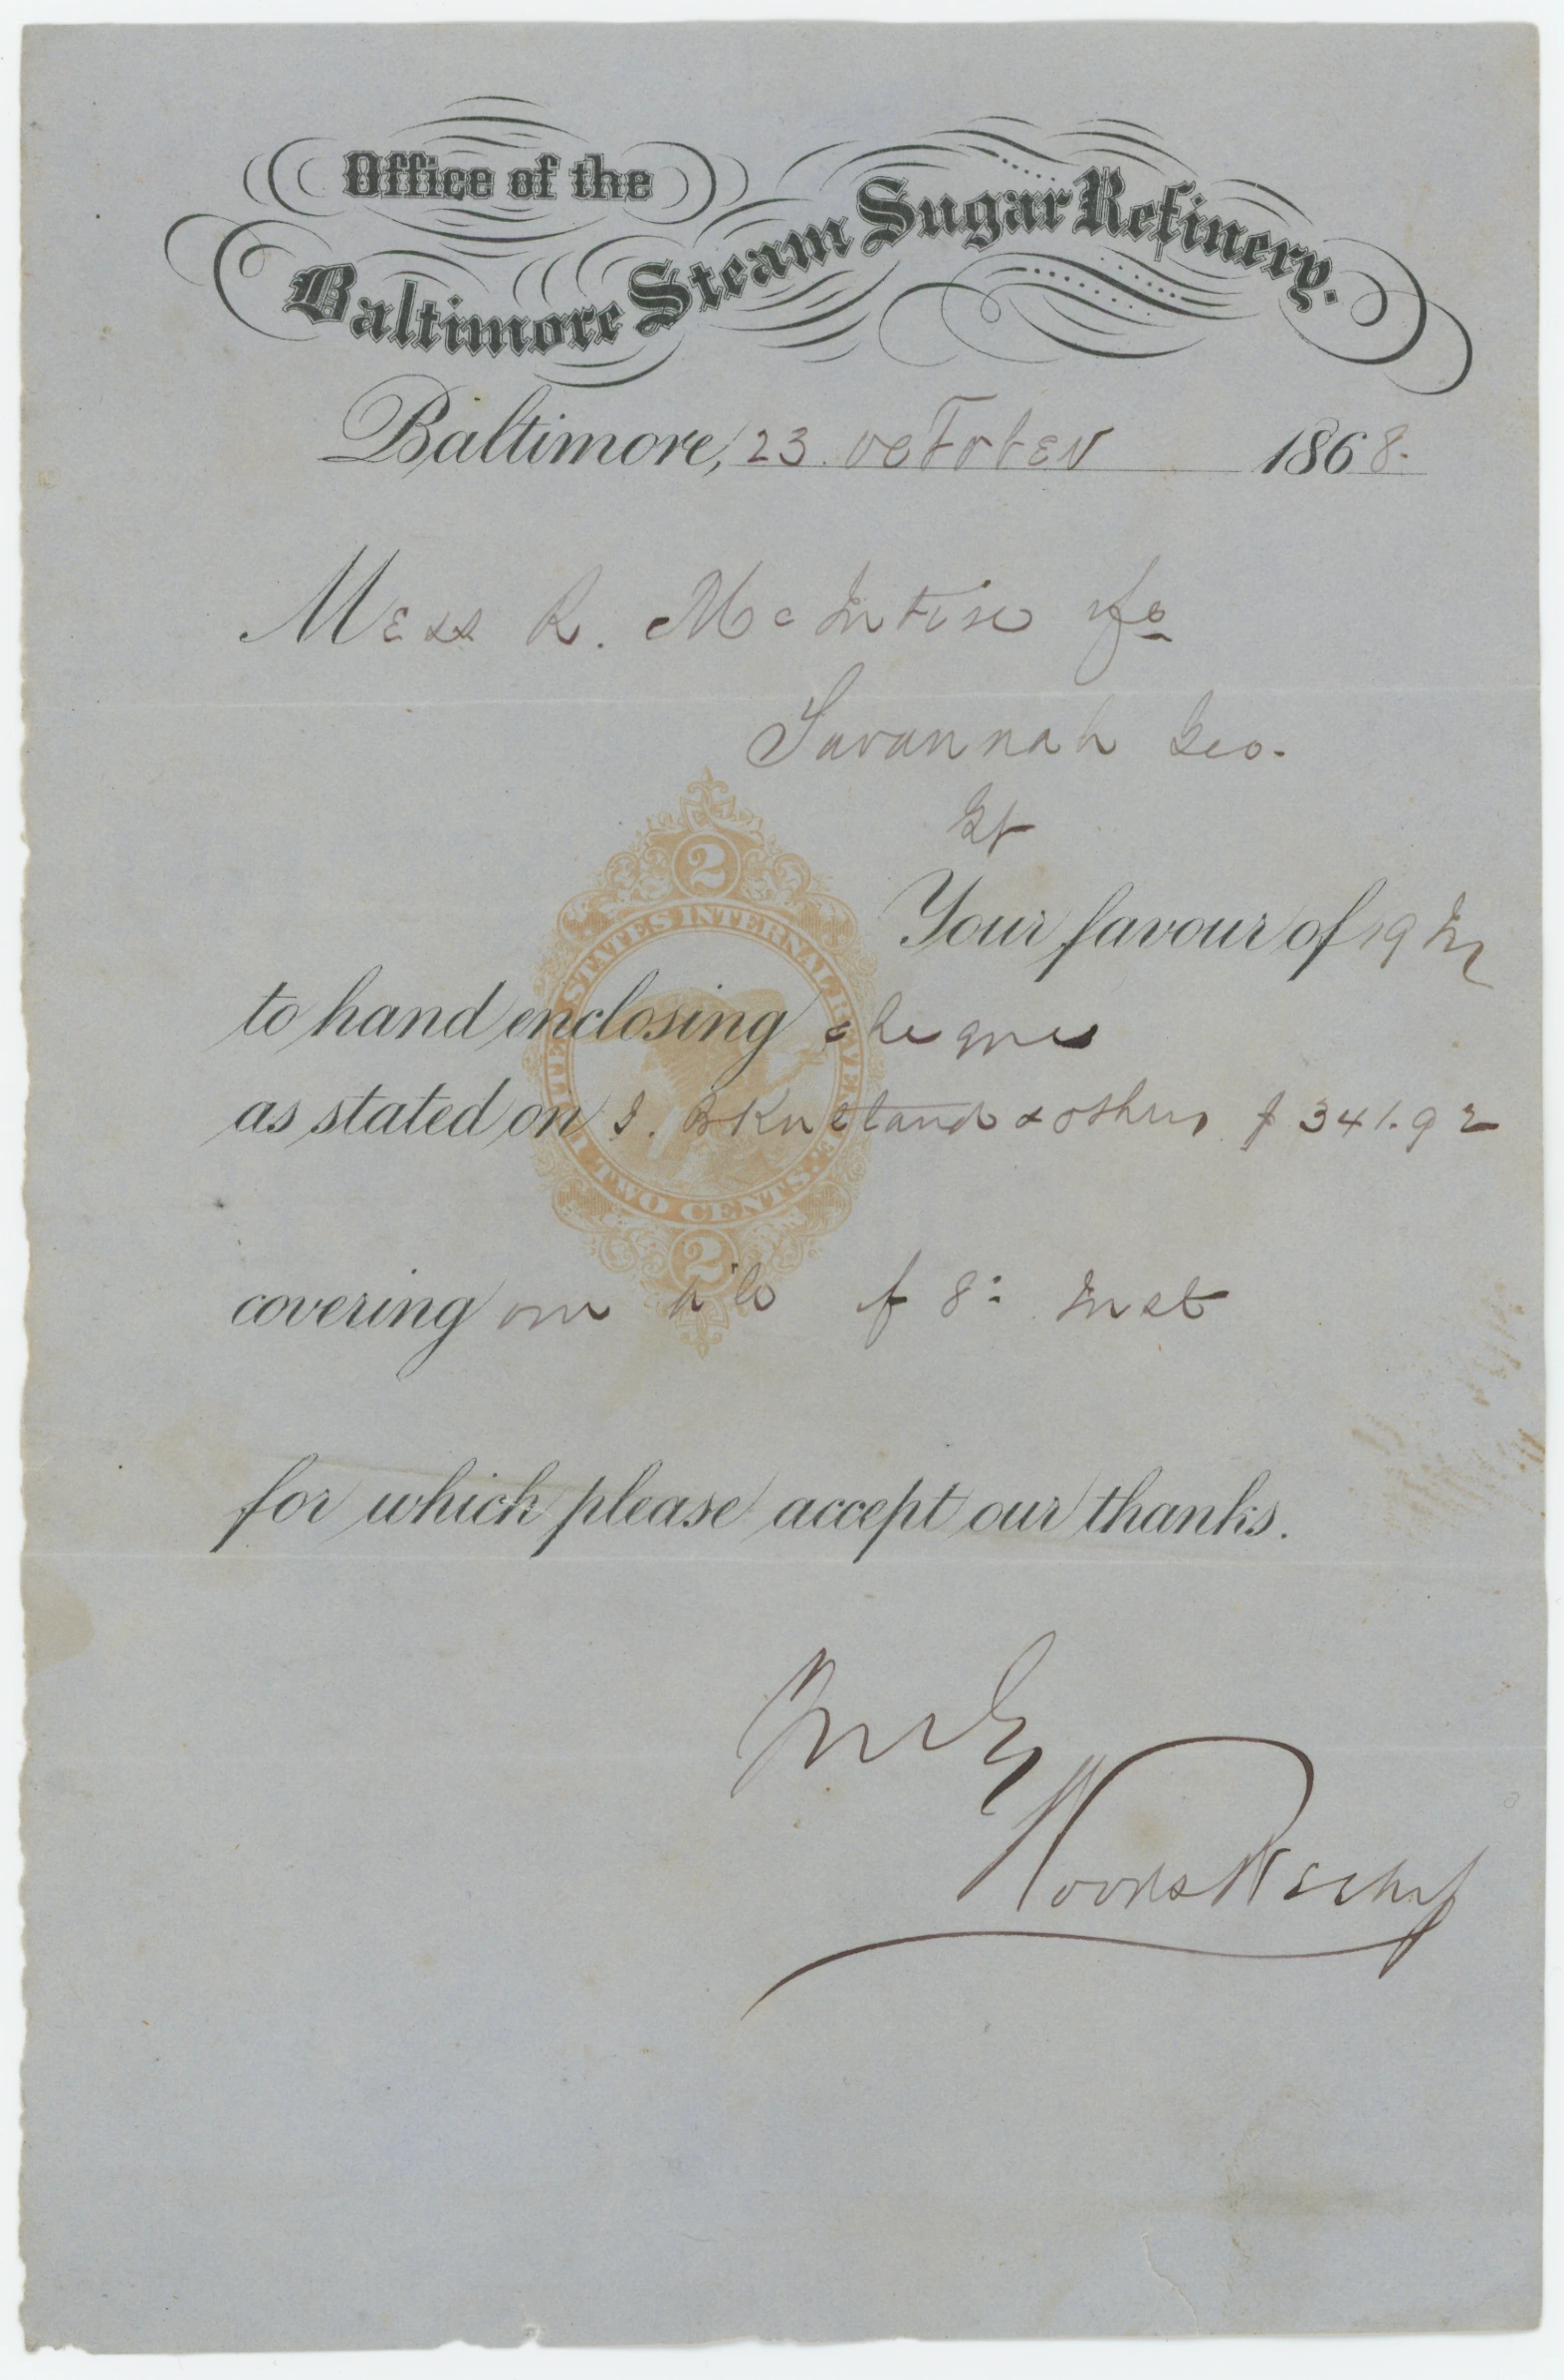 Office of the
Baltimore Steam Sugar Refinery.
Baltimore, 23. October 1868.
Mess R. McIntire & Co
Savannah Geo.
Gt
Your favour of 19 In
to hand enclosing cheques
as stated on & others $ 341.92
covering our bill of 8: Inst
for which please accept our thanks.
Woods
2
UNITED STATES INTERNAL REVENUE.
TWO CENTS.
2